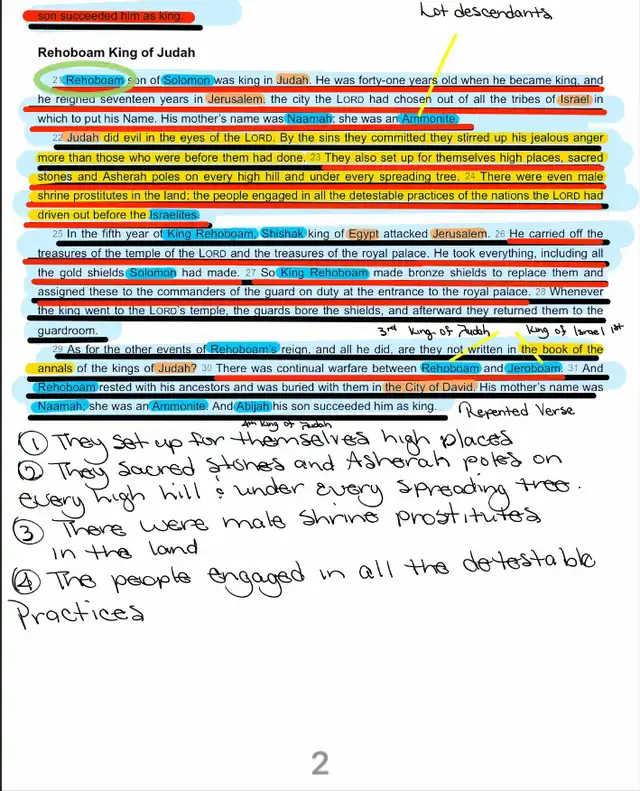 son succeeded him as king.
Lot descendants
Rehoboam King of Judah
21 Rehoboam son of Solomon was king in Judah. He was forty-one years old when he became king, and
he reigned seventeen years in Jerusalem, the city the LORD had chosen out of all the tribes of Israel in
which to put his Name. His mother's name was Naamah; she was an Ammonite.
22 Judah did evil in the eyes of the LORD. By the sins they committed they stirred up his jealous anger
more than those who were before them had done. 23 They also set up for themselves high places, sacred
stones and Asherah poles on every high hill and under every spreading tree. 24 There were even male
shrine prostitutes in the land; the people engaged in all the detestable practices of the nations the LORD had
driven out before the Israelites.
25 In the fifth year of King Rehoboam, Shishak king of Egypt attacked Jerusalem. 26 He carried off the
treasures of the temple of the LORD and the treasures of the royal palace. He took everything, including all
the gold shields Solomon had made. 27 So King Rehoboam made bronze shields to replace them and
assigned these to the commanders of the guard on duty at the entrance to the royal palace. 28 Whenever
the king went to the LORD's temple, the guards bore the shields, and afterward they returned them to the
guardroom.
3rd King of Judah King of Israel 1st
29 As for the other events of Rehoboam's reign, and all he did, are they not written in the book of the
annals of the kings of Judah? 30 There was continual warfare between Rehoboam and Jeroboam. 31 And
Rehoboam rested with his ancestors and was buried with them in the City of David. His mother's name was
Naamah; she was an Ammonite. And Abijah his son succeeded him as king.
4th King of Judah
Repented Verse
① They set up for themselves high places
② They sacred stones and Asherah poles on
every high hill & under every spreading tree.
③ There were male shrine prostitutes
in the land
④ The people engaged in all the detestable
Practices
2